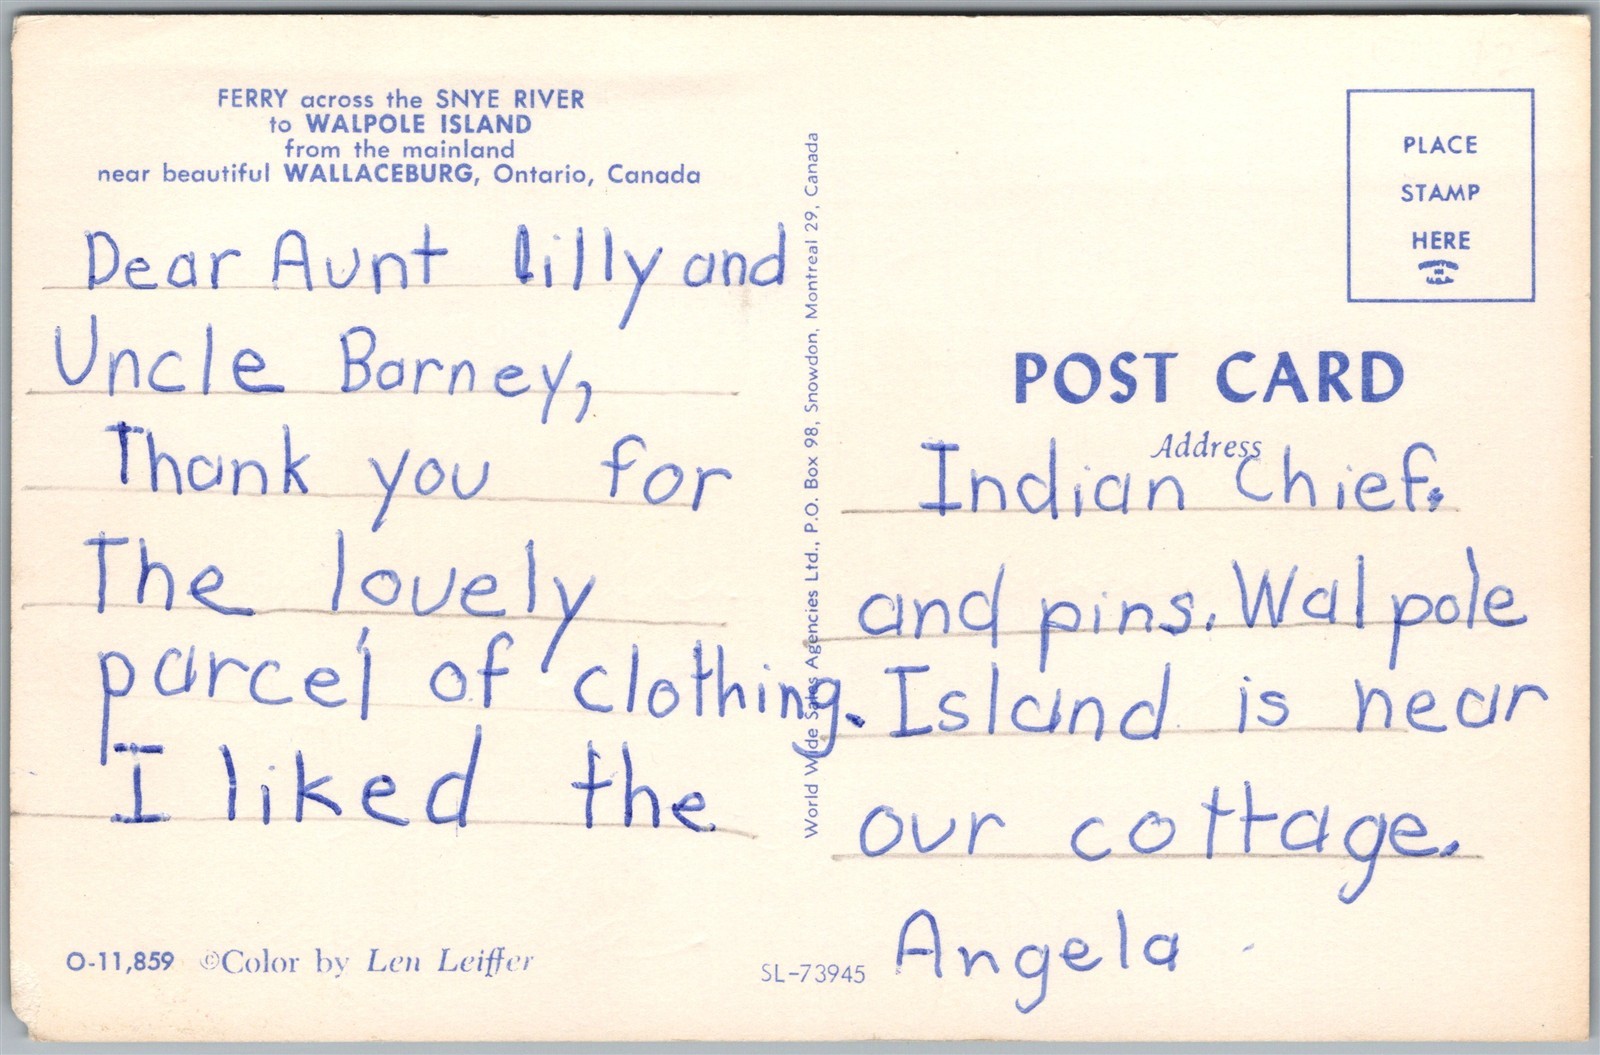 FERRY across the SNYE RIVER
to WALPOLE ISLAND
from the mainland
near beautiful WALLACEBURG, Ontario, Canada
Dear Aunt lilly and
Uncle Barney,
Thank you for
The lovely
parcel of clothing.
I liked the
O-11,859 ©Color by Len Leiffer
World Wide Sales Agencies Ltd., P.O. Box 98, Snowdon, Montreal 29, Canada
PLACE
STAMP
HERE
POST CARD
Address
Indian Chief.
and pins. Walpole
Island is near
our cottage.
Angela
SL-73945